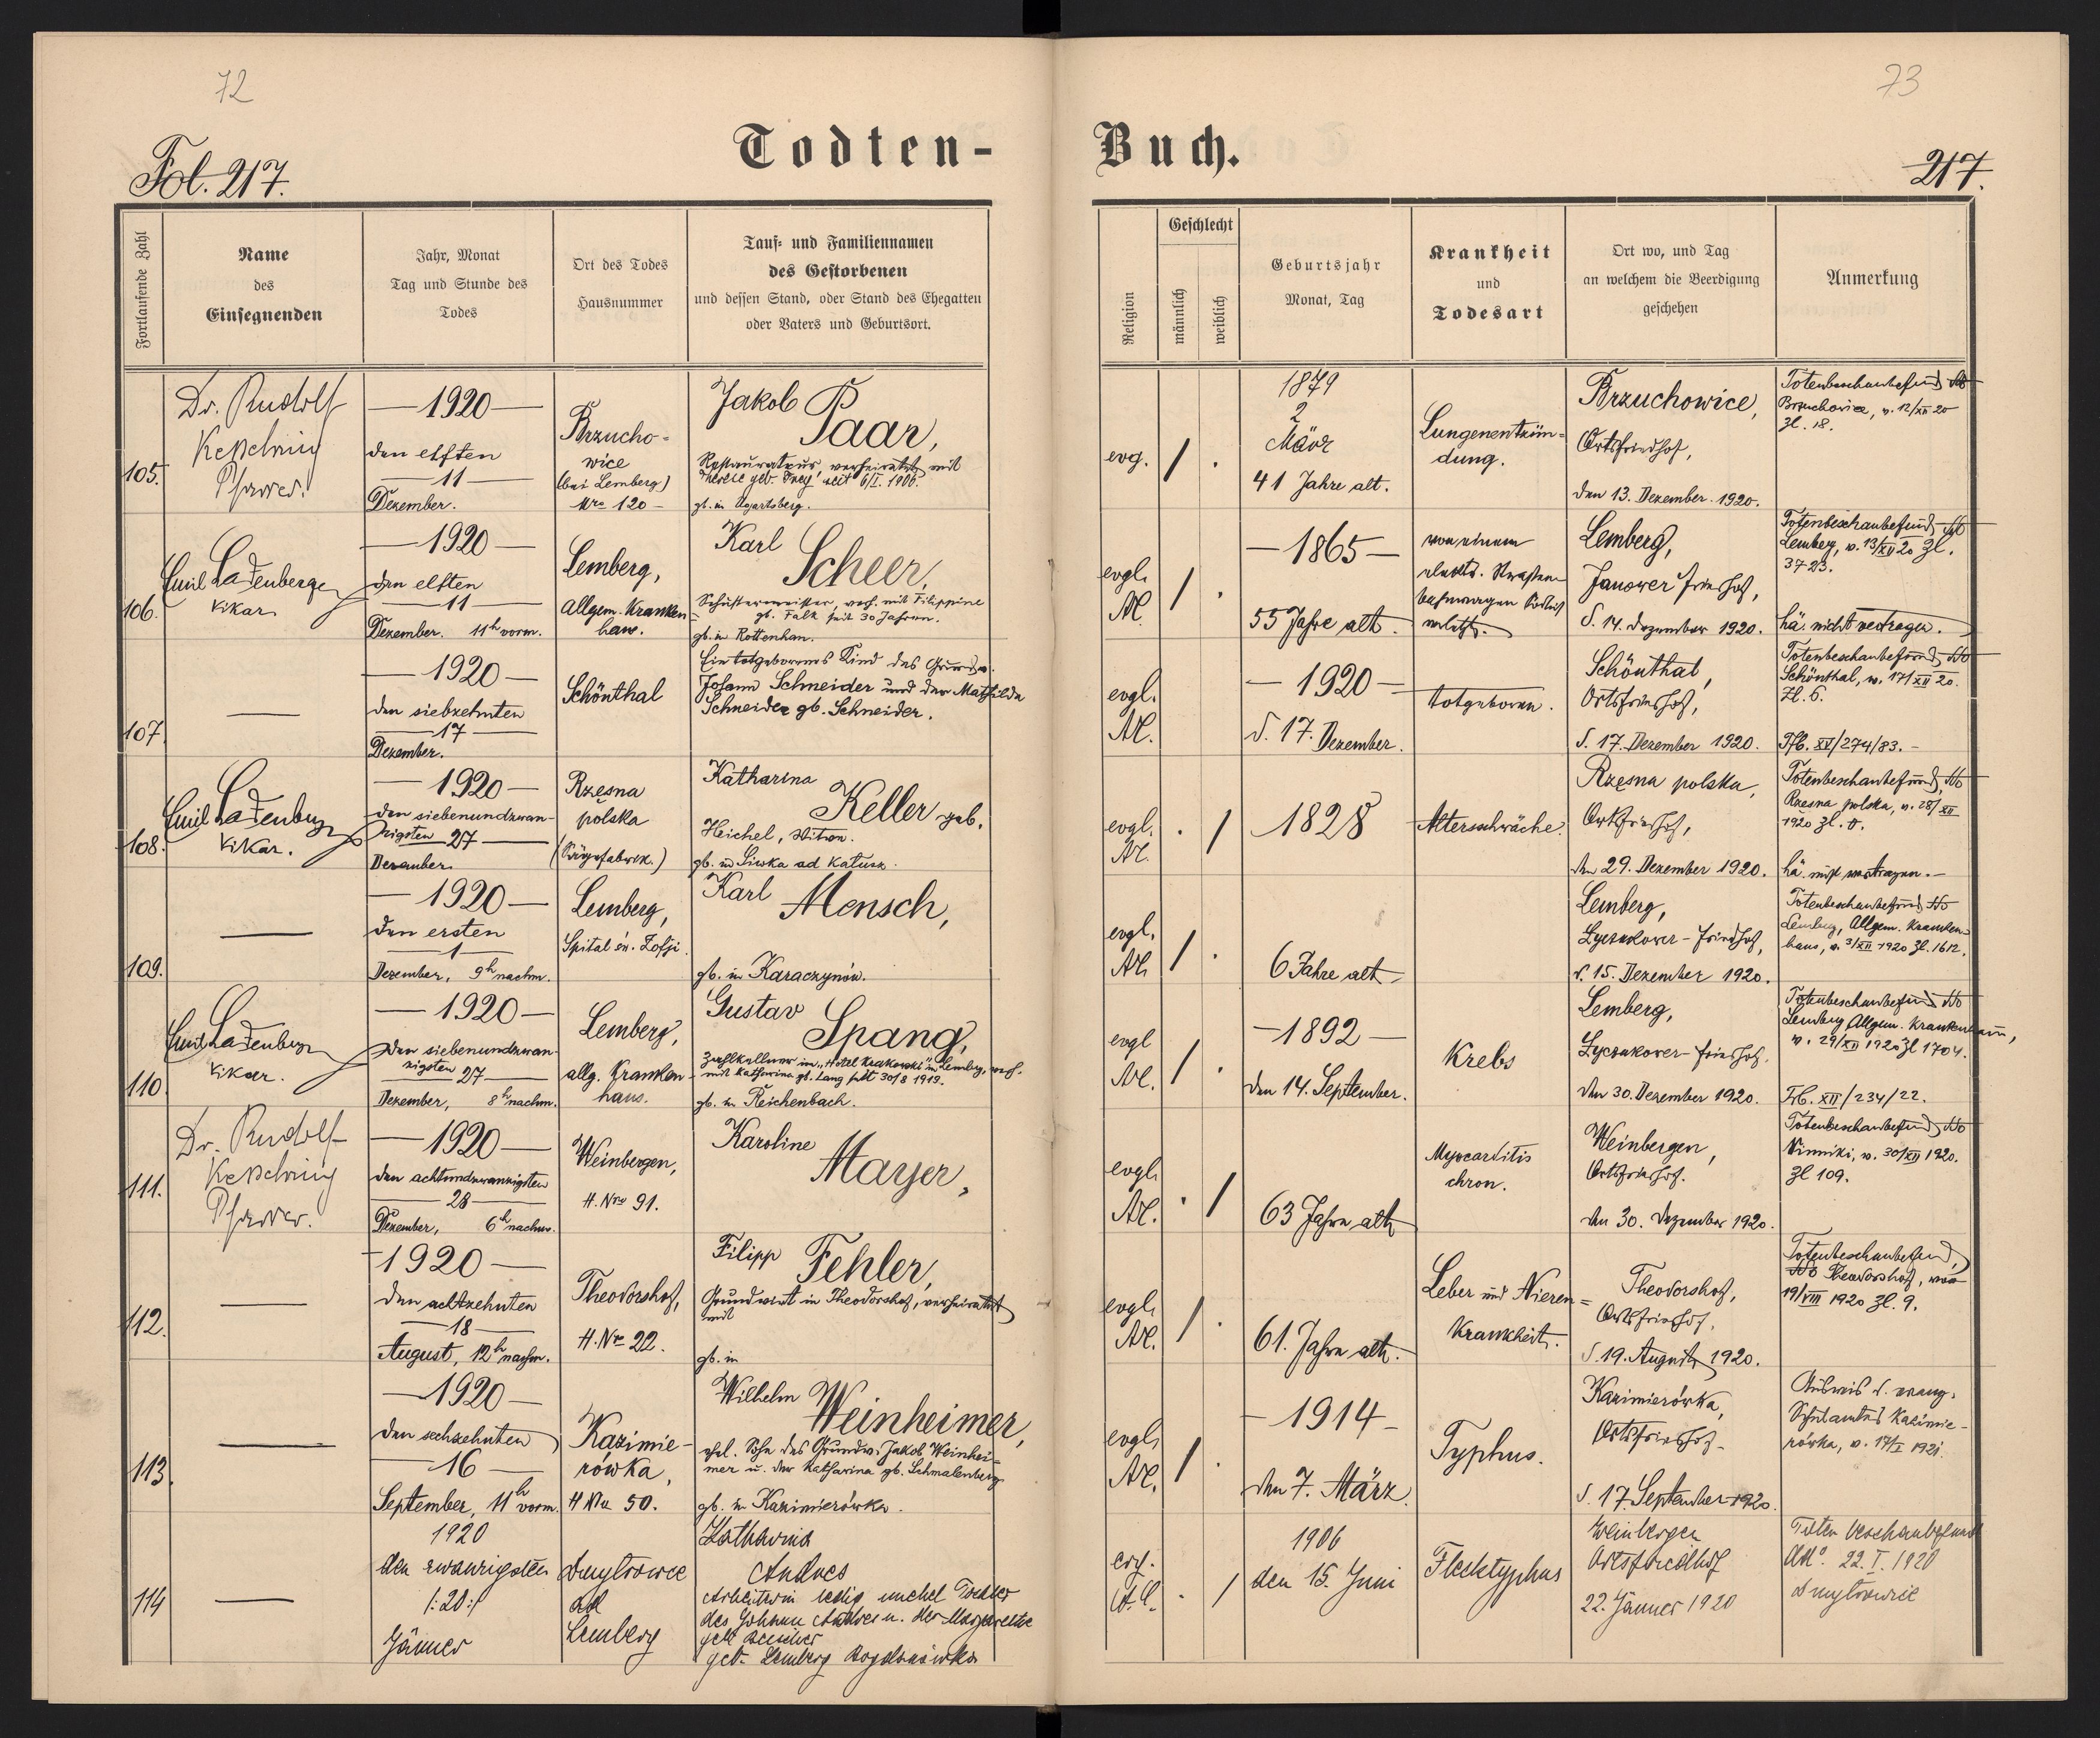 72
73
Todten-
Buch.
Fol. 217.
217.
Fortlaufende Zahl
Name
des
Einsegnenden
Jahr, Monat
Tag und Stunde des
Todes
Ort des Todes
Hausnummer
Tauf- und Familiennamen
des Gestorbenen
und dessen Stand, oder Stand des Ehegatten
oder Vaters und Geburtsort.
Religion
Geschlecht
männlich
weiblich
Geburtsjahr
Monat, Tag
Krankheit
und
Todesart
Ort wo, und Tag
an welchem die Beerdigung
geschehen
Anmerkung
105.
Dr. Rudolf
Kesselring
Pfarrer.
— 1920 —
den elften
— 11 —
Dezember.
Brzucho-
wice
(bei Lemberg)
Nro 120 —
Jakob
Paar,
Restaurateur, verheiratet mit
Therese geb. Frey seit 6/I. 1906.
gb. in Ugartsberg.
evg.
/ .
1879
2
März
41 Jahre alt.
Lungenentzün-
dung.
Brzuchowice,
Ortsfriedhof,
den 13. Dezember 1920.
Totenbeschaubefund, ddo
Brzuchowice, v. 12/XII 20
Zl. 18.
106.
Emil Ladenberger
Vikar
— 1920 —
den elften
— 11 —
Dezember. 11h vorm.
Lemberg,
Allgem. Kranken-
haus.
Karl
Scheer,
Schustermeister, verh. mit Filippine
gb. Falk seit 30 Jahren.
gb. in Rottenhan.
evgl.
AC.
/ .
— 1865 —
55 Jahre alt.
von einem
elektr. Strassen-
bahnwagen tödlich
verletzt.
Lemberg,
Janower Friedhof,
d. 14. Dezember 1920.
Totenbeschaubefund, ddo
Lemberg, v. 13/XII 20 Zl.
3723.
Hä. nicht vertragen.
107.
—
— 1920 —
den siebzehnten
— 17 —
Dezember.
Schönthal
Ein totgeborenes Kind des Grundw.
Johann Schneider und der Mathilde
Schneider gb. Schneider.
evgl.
AC.
— 1920 —
d. 17. Dezember.
totgeboren.
Schönthal,
Ortsfriedhof,
d. 17. Dezember 1920.
Totenbeschaubefund, ddo
Schönthal, v. 17/XII 20.
Zl. 6.
Tfb. XV/274/83. —
108.
Emil Ladenberger
Vikar.
— 1920 —
den siebenundzwan-
zigsten 27 —
Dezember.
Rzęsna
polska
(Sägefabrik.)
Katharina
Keller geb.
Heichel, Witwe.
gb. in Siwka ad Kałusz.
evgl.
AC.
. /
1828
Altersschwäche.
Rzęsna polska,
Ortsfriedhof,
den 29. Dezember 1920.
Totenbeschaubefund, ddo
Rzesna polska, v. 28/XII
1920 Zl.
Hä. nicht vertragen. —
109.
—
— 1920 —
den ersten
— 1 —
Dezember, 9h nachm.
Lemberg,
Spital św. Zofji.
Karl
Mensch,
gb. in Karaczynów.
evgl.
AC.
/ .
6 Jahre alt
Lemberg,
Lyczakower-Friedhof,
d. 15. Dezember 1920.
Totenbeschaubefund ddo
Lemberg, Allgem. Kranken-
haus, v. 3/XII 1920 Zl. 1612.
110.
Emil Ladenberger
Vikar.
— 1920 —
den siebenundzwan-
zigsten 27 —
Dezember, 8h nachm.
Lemberg,
allg. Kranken-
haus.
Gustav
Spang,
Zahlkellner im „Hotel Krakowski" in Lemberg, verh.
mit Katharina gb. Lang seit 30/8 1919.
gb. in Reichenbach.
evgl
AC.
/ .
— 1892 —
den 14. September.
Krebs
Lemberg,
Lyczakower-Friedhof.
den 30. Dezember 1920.
Totenbeschaubefund ddo
Lemberg Allgem. Krankenhaus,
v. 29/XII 1920 Zl 1704.
Tfb. XII/234/22.
111.
Dr. Rudolf
Kesselring
Pfarrer.
— 1920 —
den achtundzwanzigsten
— 28 —
Dezember, 6h nachm.
Weinbergen,
H. Nro 91.
Karoline
Mayer,
evgl.
AC.
. /
63 Jahre alt
Myocarditis
chron.
Weinbergen,
Ortsfriedhof.
den 30. Dezember 1920.
Totenbeschaubefund, ddo
Winniki, v. 30/XII 1920.
Zl 109.
112.
—
— 1920 —
den achtzehnten
— 18 —
August, 12h nachm.
Theodorshof,
H. Nro 22.
Filipp
Fehler,
Grundwirt in Theodorshof, verheiratet
mit
gb. in
evgl.
AC.
/ .
61. Jahre alt.
Leber und Nieren-
Krankheit.
Theodorshof,
Ortsfriedhof,
d. 19. August 1920.
Totenbeschaubefund,
ddo Theodorshof, vom
19/VIII 1920 Zl. 9.
113.
—
— 1920 —
den sechzehnten
— 16 —
September, 11h vorm.
Kazimie-
rówka,
H Nro 50.
Wilhelm
Weinheimer,
ehel. Sohn des Grundw. Jakob Weinhei-
mer u. der Katharina gb. Schmalenberg
gb. in Kazimierówka.
evgl.
AC.
/ .
— 1914 —
den 7. März.
Typhus.
Kazimierówka,
Ortsfriedhof.
d. 17. September 1920.
Ausweis d. evang.
Schulamtes Kazimie-
rówka, v. 17/I 1921.
114
—
1920
den zwanzigsten
/:20:/
Jänner
Dmytrowice
ad
Lemberg
Katharina
Andres
Arbeiterin ledig unehel Tochter
des Johann Andres u. der Margarethe
geb
geb. Lemberg Bogdanówka
evg.
A.C.
. /
1906
den 15. Juni
Flecktyphus
Weinbergen
Ortsfriedhof
22. Jänner 1920
Totenbeschaubefund
ddo. 22. I. 1920
Dmytrowice